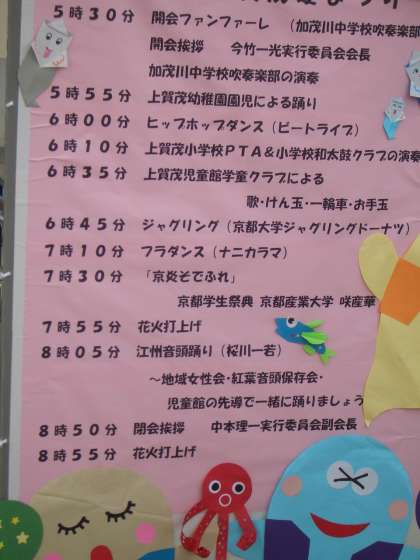 5時30分 開会ファンファーレ (加茂川中学校吹奏楽部
開会挨拶 今竹一光実行委員会会長
加茂川中学校吹奏楽部の演奏
5時55分 上賀茂幼稚園園児による踊り
6時00分 ヒップホップダンス(ビートライブ)
6時10分 上賀茂小学校PTA&小学校和太鼓クラブの演奏
6時35分 上賀茂児童館学童クラブによる
歌・けん玉・一輪車・お手玉
6時45分 ジャグリング(京都大学ジャグリングドーナツ)
7時10分 フラダンス(ナニカラマ)
7時30分 「京炎そでふれ」
京都学生祭典 京都産業大学 咲産華
7時55分 花火打上げ
8時05分 江州音頭踊り(桜川一若)
～地域女性会・紅葉音頭保存会・
児童館の先導で一緒に踊りましょう
8時50分 閉会挨拶 中本理一実行委員会副会長
8時55分 花火打上げ